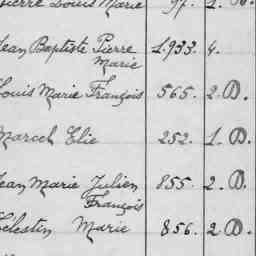 Pierre Louis Marie 97. 2.
Jean Baptiste Pierre 1.933. 4.
Marie
Louis Marie François 565. 2 D.
Marcel Elie 252. 1 D.
Jean Marie Julien 855. 2 D.
François
Célestin Marie 856. 2 D.